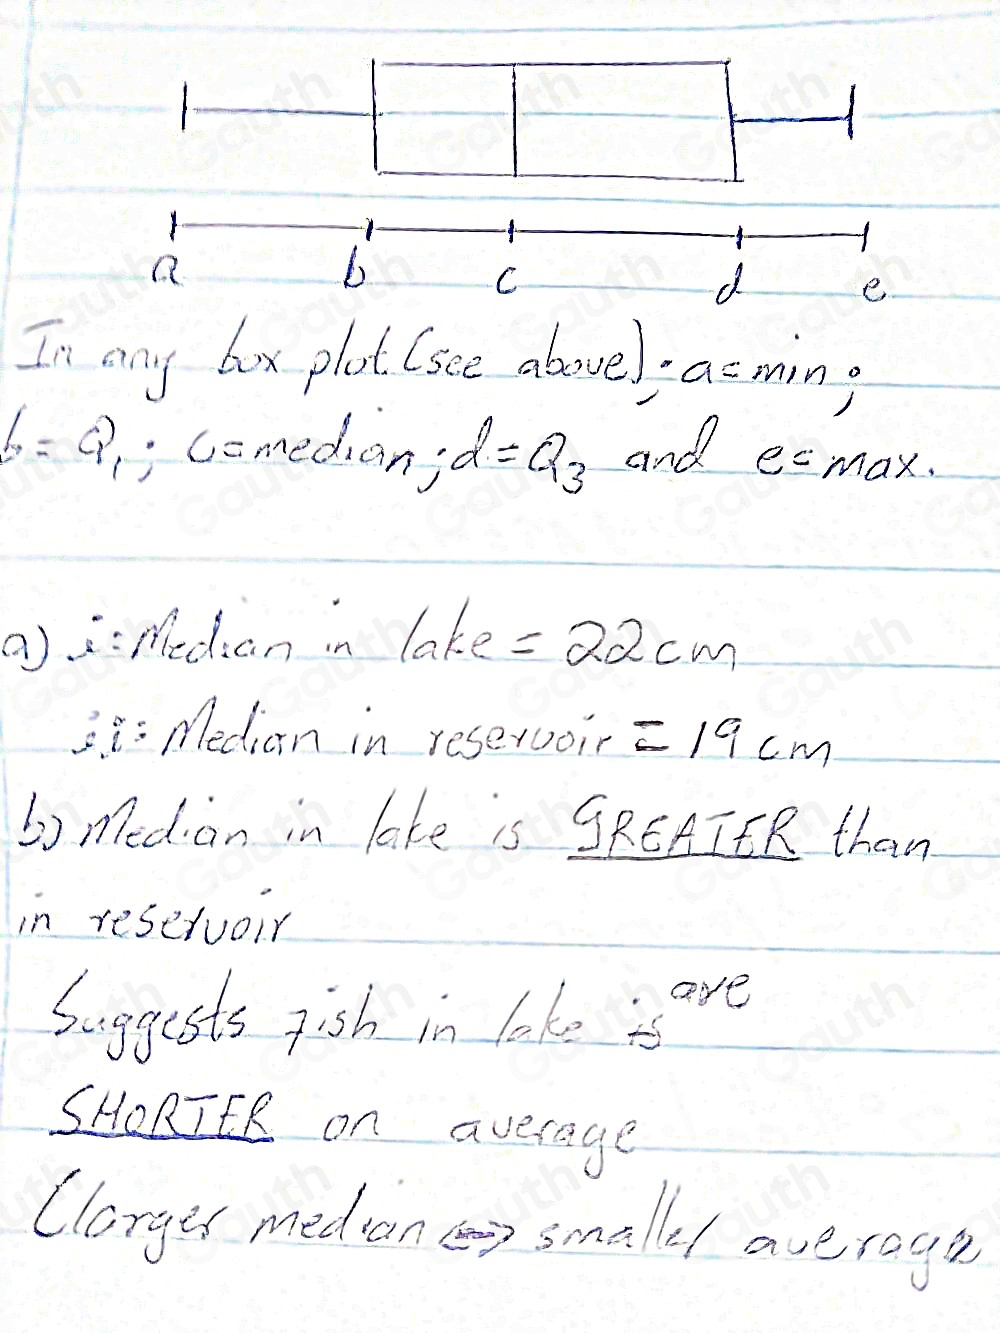 a b c d e
In any box plot (see above): a=min;
b=Q₁; c=median; d=Q₃ and e=max.
a) i: Median in lake = 22cm
ii: Median in reservoir = 19cm
b) Median in lake is GREATER than
in reservoir
Suggests fish in lake is are
SHORTER on average
(larger median ⇔ smaller average